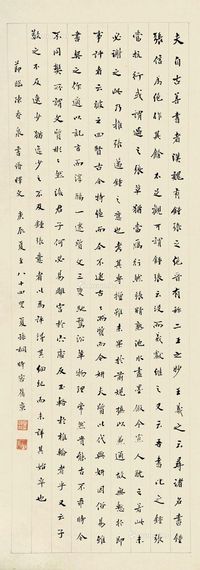 夫自古善書者漢魏有鍾張之絕晉末稱二王之妙王羲之云尋諸名書鍾
張信為絕倫其餘不足觀可謂鍾張云沒而羲獻繼之又云吾書比之鍾張
當抗行或謂過之張草猶當雁行然張精熟池水盡墨假令寡人耽之若此未
必謝之此乃推張邁鍾之意也考其專擅雖未果於前規摭以兼通故無慙於即
事評者云彼之四賢古今特絕而今不逮古古質而今妍夫質以代興妍因俗易雖
書契之作適以記言而淳醨一遷質文三變馳騖沿革物理常然貴能古不乖時今
不同弊所謂文質彬彬然後君子何必易雕宮於穴處反玉輅於椎輪者乎又云子
敬之不及逸少猶逸少之不及鍾張意者以為評得其綱紀而未詳其始卒也
節臨陳香泉書譜釋文 庚辰夏至八十四叟夏孫桐時客舊京